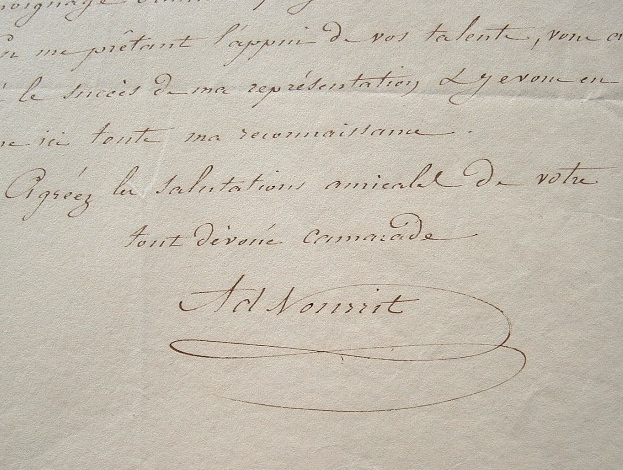 En me prêtant l'appui de vos talents, vous
le succès de ma représentation, & je vous en
ici toute ma reconnaissance.
Agréez les salutations amicales de votre
tout dévoué camarade
Ad Nourrit